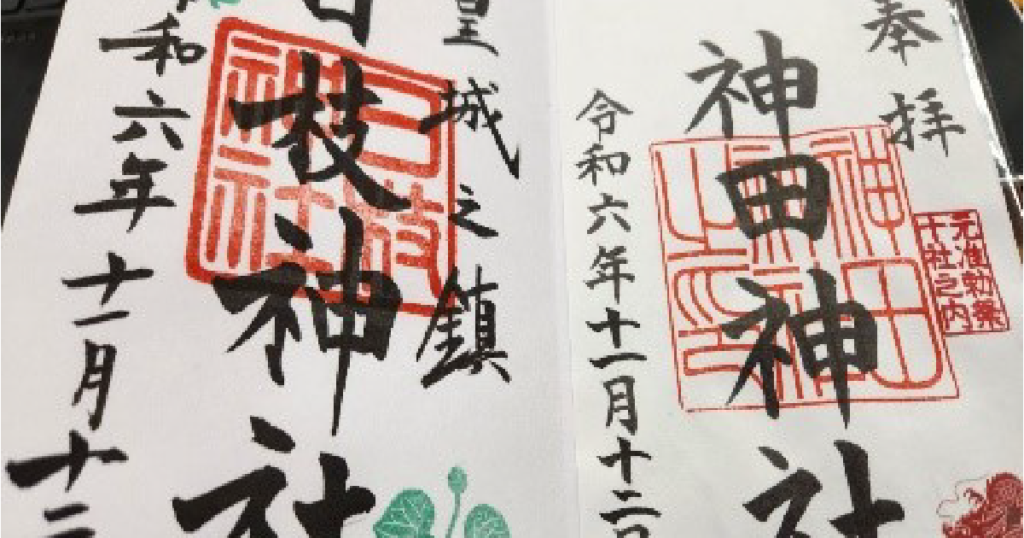 奉拝
神田神社
神田神社之印
元准勅祭
十社之内
令和六年十一月十二日
皇城之鎮
日枝神社
日枝神社
令和六年十一月十二